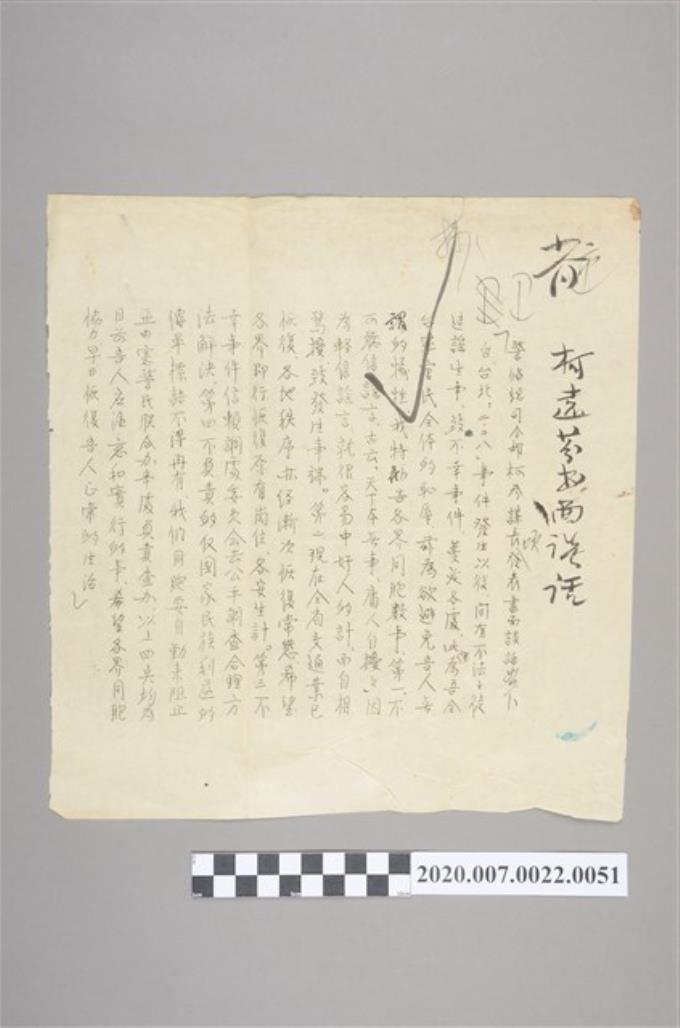 柯遠芬書面談話
警備總司令部柯參謀長頃發表書面談話如下
自「台北二二八」事件發生以後，間有不法之徒
造謠生事，致不幸事件，蔓延各處，此為吾全
台 民全体的恥辱，玆為欲避免吾人無
謂的犧牲，我特勸告各界同胞數事，第一不
可聽信謠言，古云，天下本無事，庸人自擾之因
為輕信謠言，就很容易中好人的計，而自相
驚擾致發生事誤。第二現在全省交通業已
恢復，各地秩序亦經漸次恢復常態希望
各界即行恢復原有崗位，各安生計。第三不
幸事件信賴調處委員会去公平調查合理方
法解決。第四不負責的反國家民族利益的
傳單標語不得再有，我們同胞要自動來阻止
並由憲警民联合办事處負責查办，以上四点均為
目前吾人應注意和實行的事，希望各界同胞
協力，早日恢復吾人正常的生活」
2020.007.0022.0051